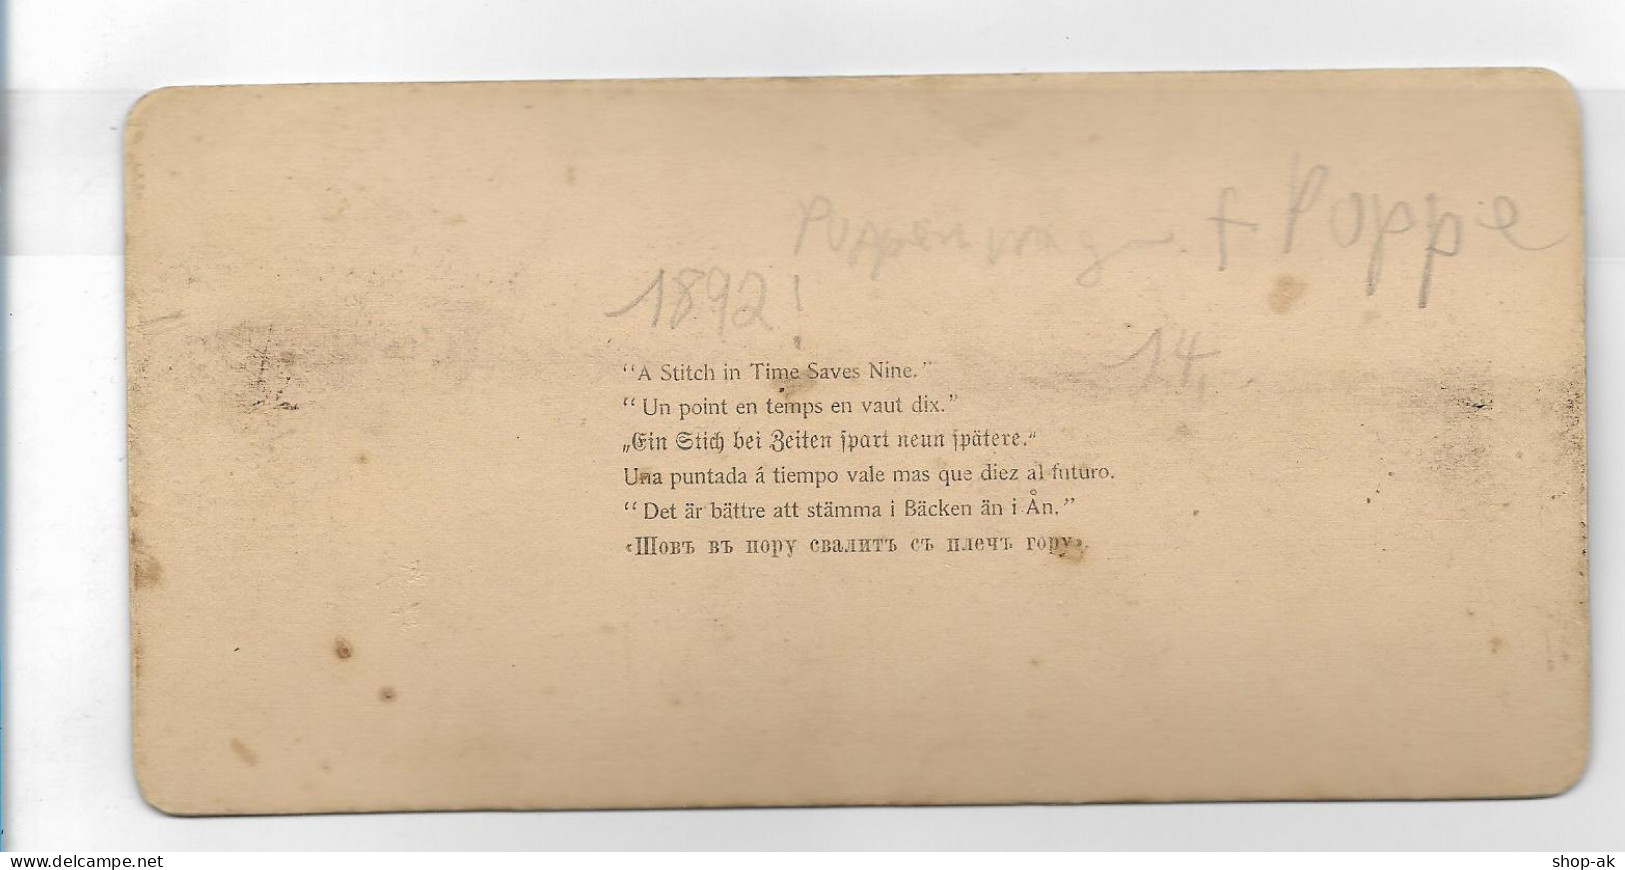 Puppenwagen + Puppe
1892!
14,
"A Stitch in Time Saves Nine."
"Un point en temps en vaut dix."
„Ein Stich bei Zeiten spart neun spätere."
Una puntada á tiempo vale mas que diez al futuro.
"Det är bättre att stämma i Bäcken än i Ån."
«Шовъ въ пору свалитъ съ плечъ гору».
www.delcampe.net
shop-ak